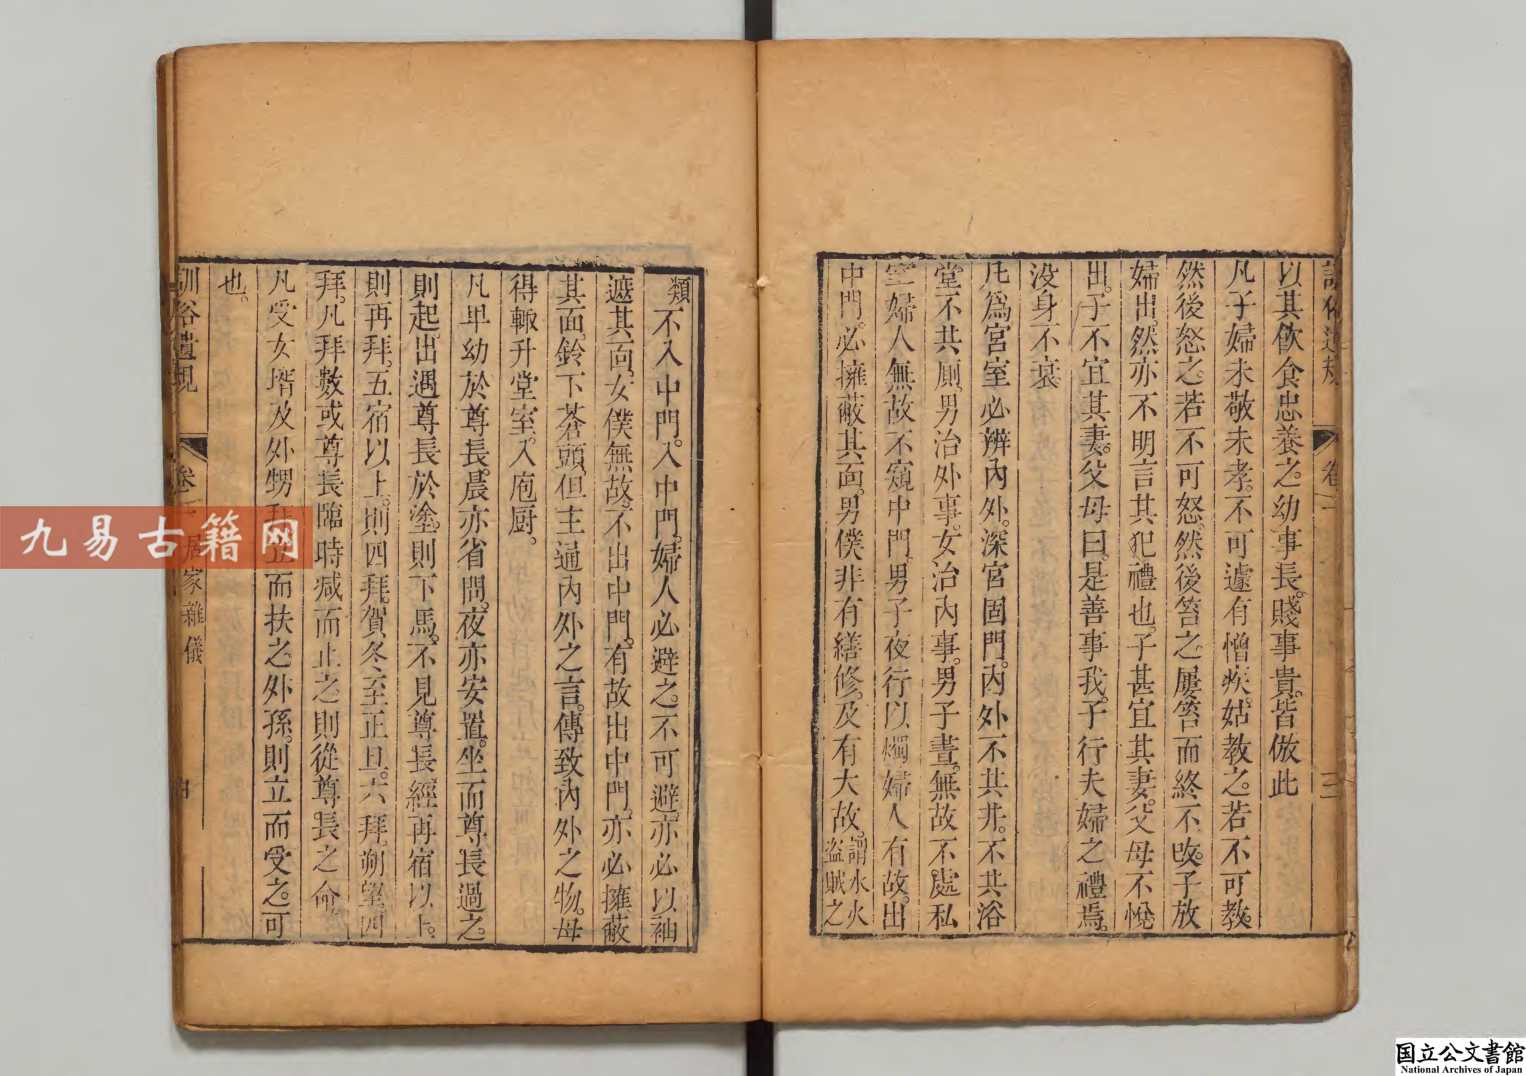 訓俗遺規 卷二 三
以其飲食忠養之。幼事長。賤事貴。皆倣此
凡子婦未敬未孝。不可遽有憎疾。姑教之。若不可教。
然後怒之。若不可怒。然後笞之。屢笞而終不改。子放
婦出。然亦不明言其犯禮也。子甚宜其妻。父母不悅
出。子不宜其妻。父母曰。是善事我。子行夫婦之禮焉。
沒身不衰
凡爲宮室必辨內外。深宮固門。內外不共井。不共浴
堂不共厠。男治外事。女治內事。男子晝無故不處私
室婦人無故不窺中門。男子夜行以燭婦人有故。出
中門。必擁蔽其面。男僕非有繕修。及有大故。謂水火
盜賊之
類不入中門。入中門。婦人必避之。不可避。亦必以袖
遮其面。女僕無故。不出中門。有故出中門。亦必擁蔽
其面鈴下蒼頭但主通內外之言。傳致內外之物。毋
得輙升堂室。入庖厨。
凡卑幼於尊長。晨亦省問。夜亦安置。坐而尊長過之
則起。出遇尊長於塗。則下馬。不見尊長經再宿以上。
則再拜。五宿以上。則四拜。賀冬至正旦。六拜。朔望。四
拜。凡拜數或尊長臨時減而止之則從尊長之命
凡受女壻及外甥拜立而扶之外孫。則立而受之。可
也。
訓俗遺規 卷二 居家雜儀
九易古籍网
国立公文書館
National Archives of Japan